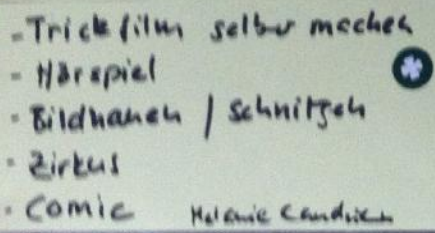 - Trickfilm selber machen
- Hörspiel
- Bildhauen / Schnitzen
- Zirkus
- Comic Melanie